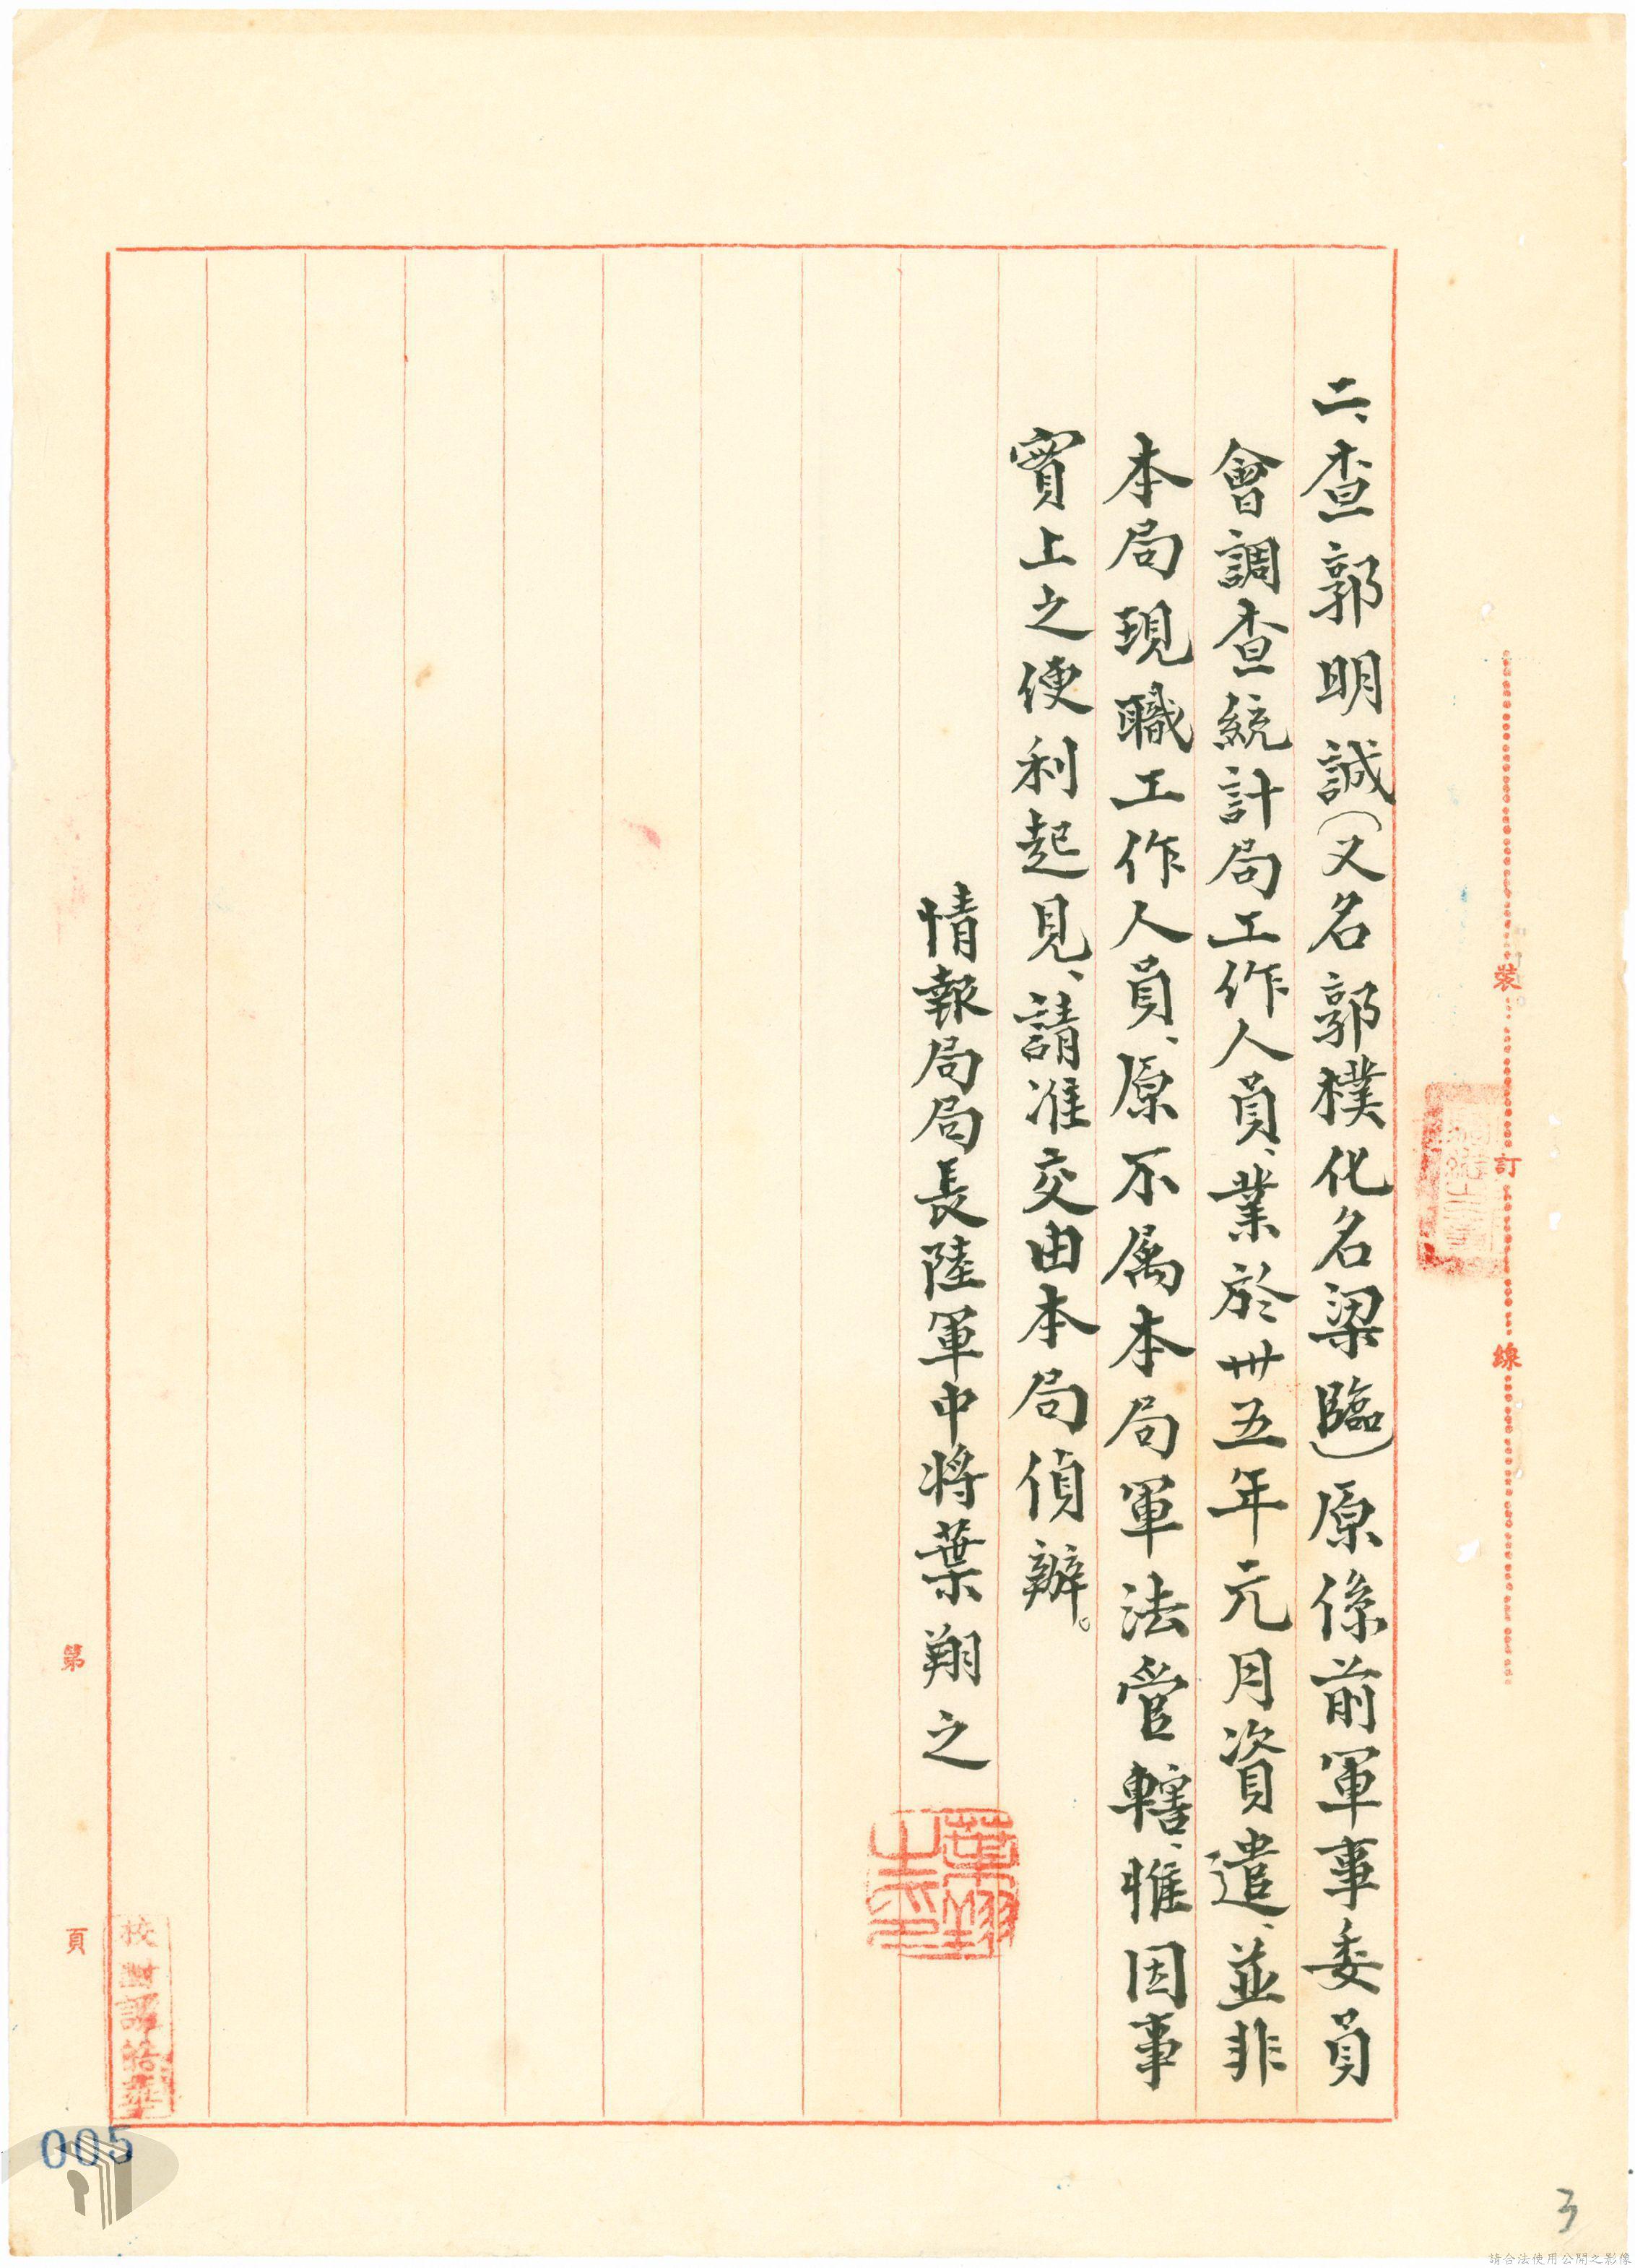 二、查郭明誠（又名郭樸化名梁臨）原係前軍事委員
會調查統計局工作人員、業於卅五年元月資遣、並非
本局現職工作人員、原不属本局軍法管轄、惟因事
實上之便利起見、請准交由本局偵辦。
情報局局長陸軍中將葉翔之
葉翔之印
裝
訂
線
第
頁
校對譚
005
3
請合法使用公開之影像